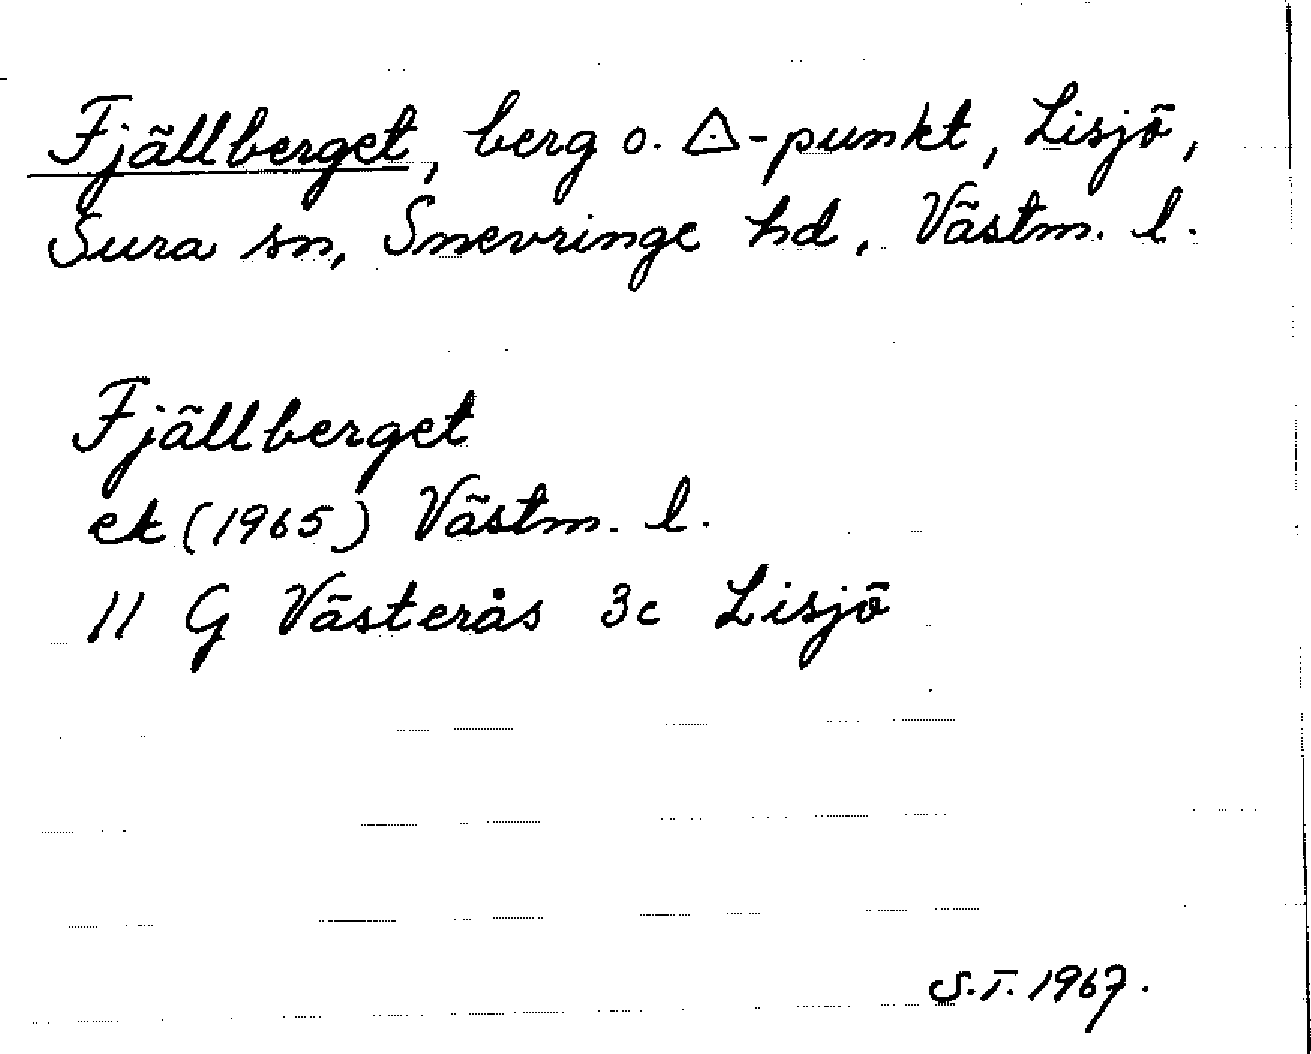 Fjällberget, berg o. △-punkt, Lisjö,
Sura sn, Snevringe hd, Västm. l.
Fjällberget
ek (1965) Västm. l.
11 G Västerås 3c Lisjö
S.T. 1967.